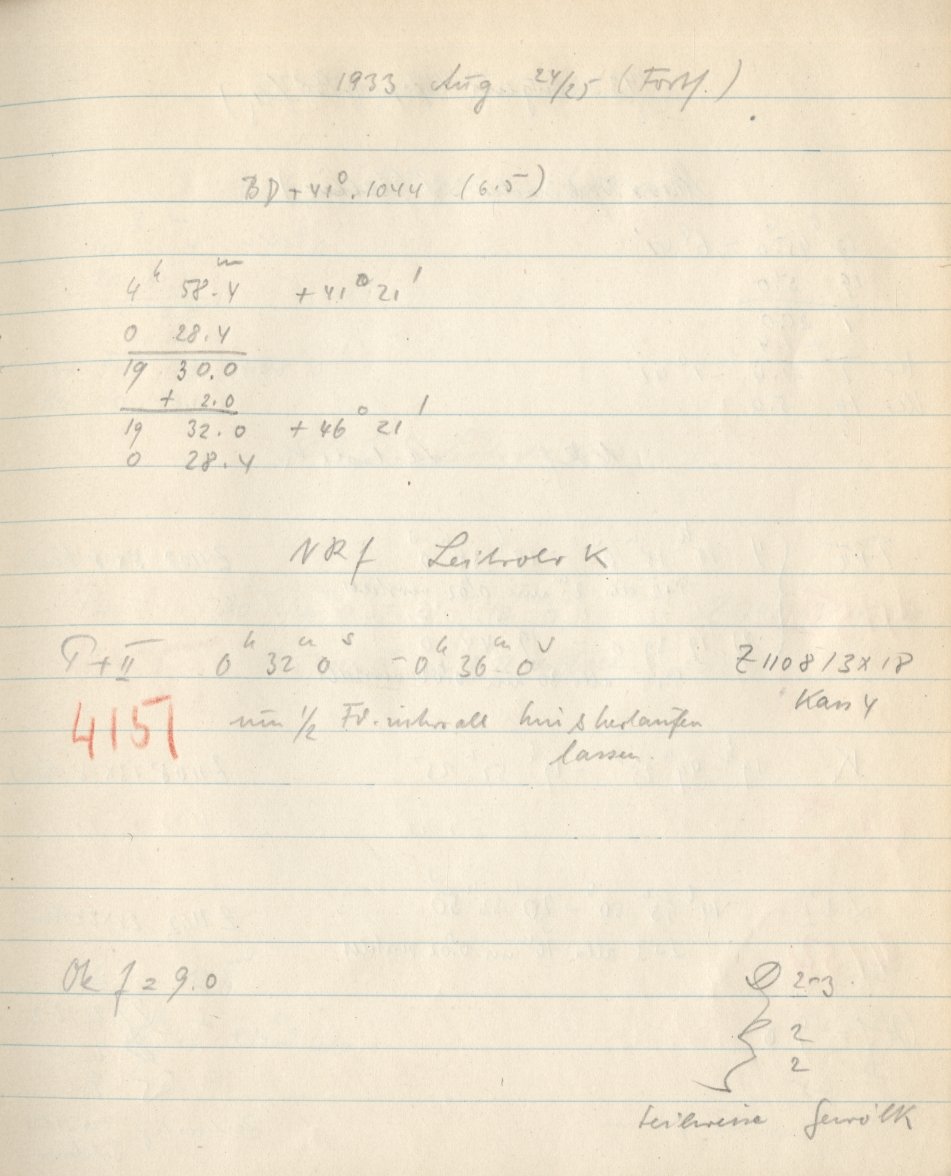 1933 Aug 24/25 (Fortf.)
BD + 41°.1044 (6.5)
4h 58m.4 +41° 21'
0 28.4
19 30.0
+ 2.0
19 32.0 +46° 21'
0 28.4
NRf Leitrohr K
I + II 0h 32m 0s - 0h 36m 0s Z 1108 13x18
Kass 4
4151 um 1/2 Fd. intervall hin & herlaufen
lassen.
Ok f = 9.0
2-3.
2
2
teilweise Gewölk